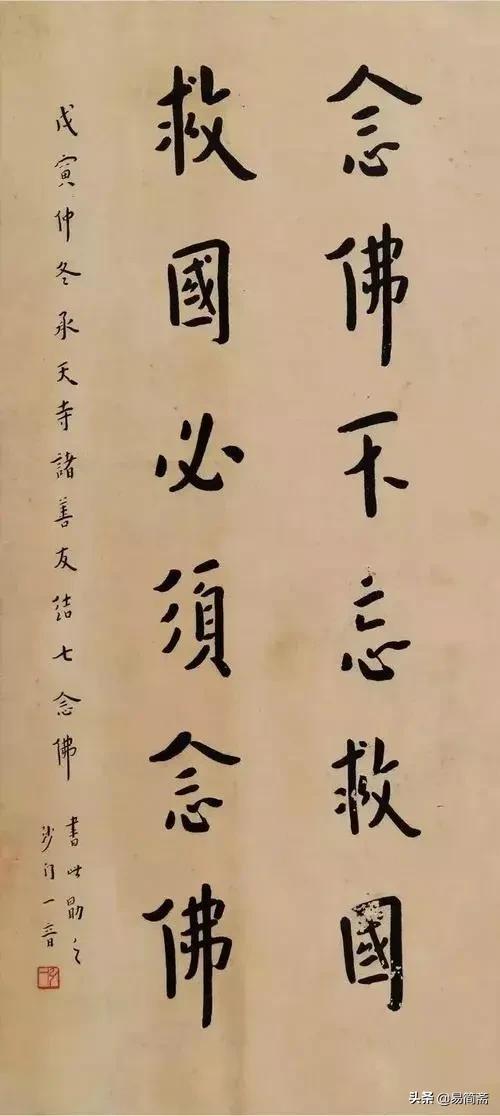 念佛不忘救國
救國必須念佛
戊寅仲冬承天寺諸善友結七念佛
書此勖之
沙门一音
头条 @易简斋